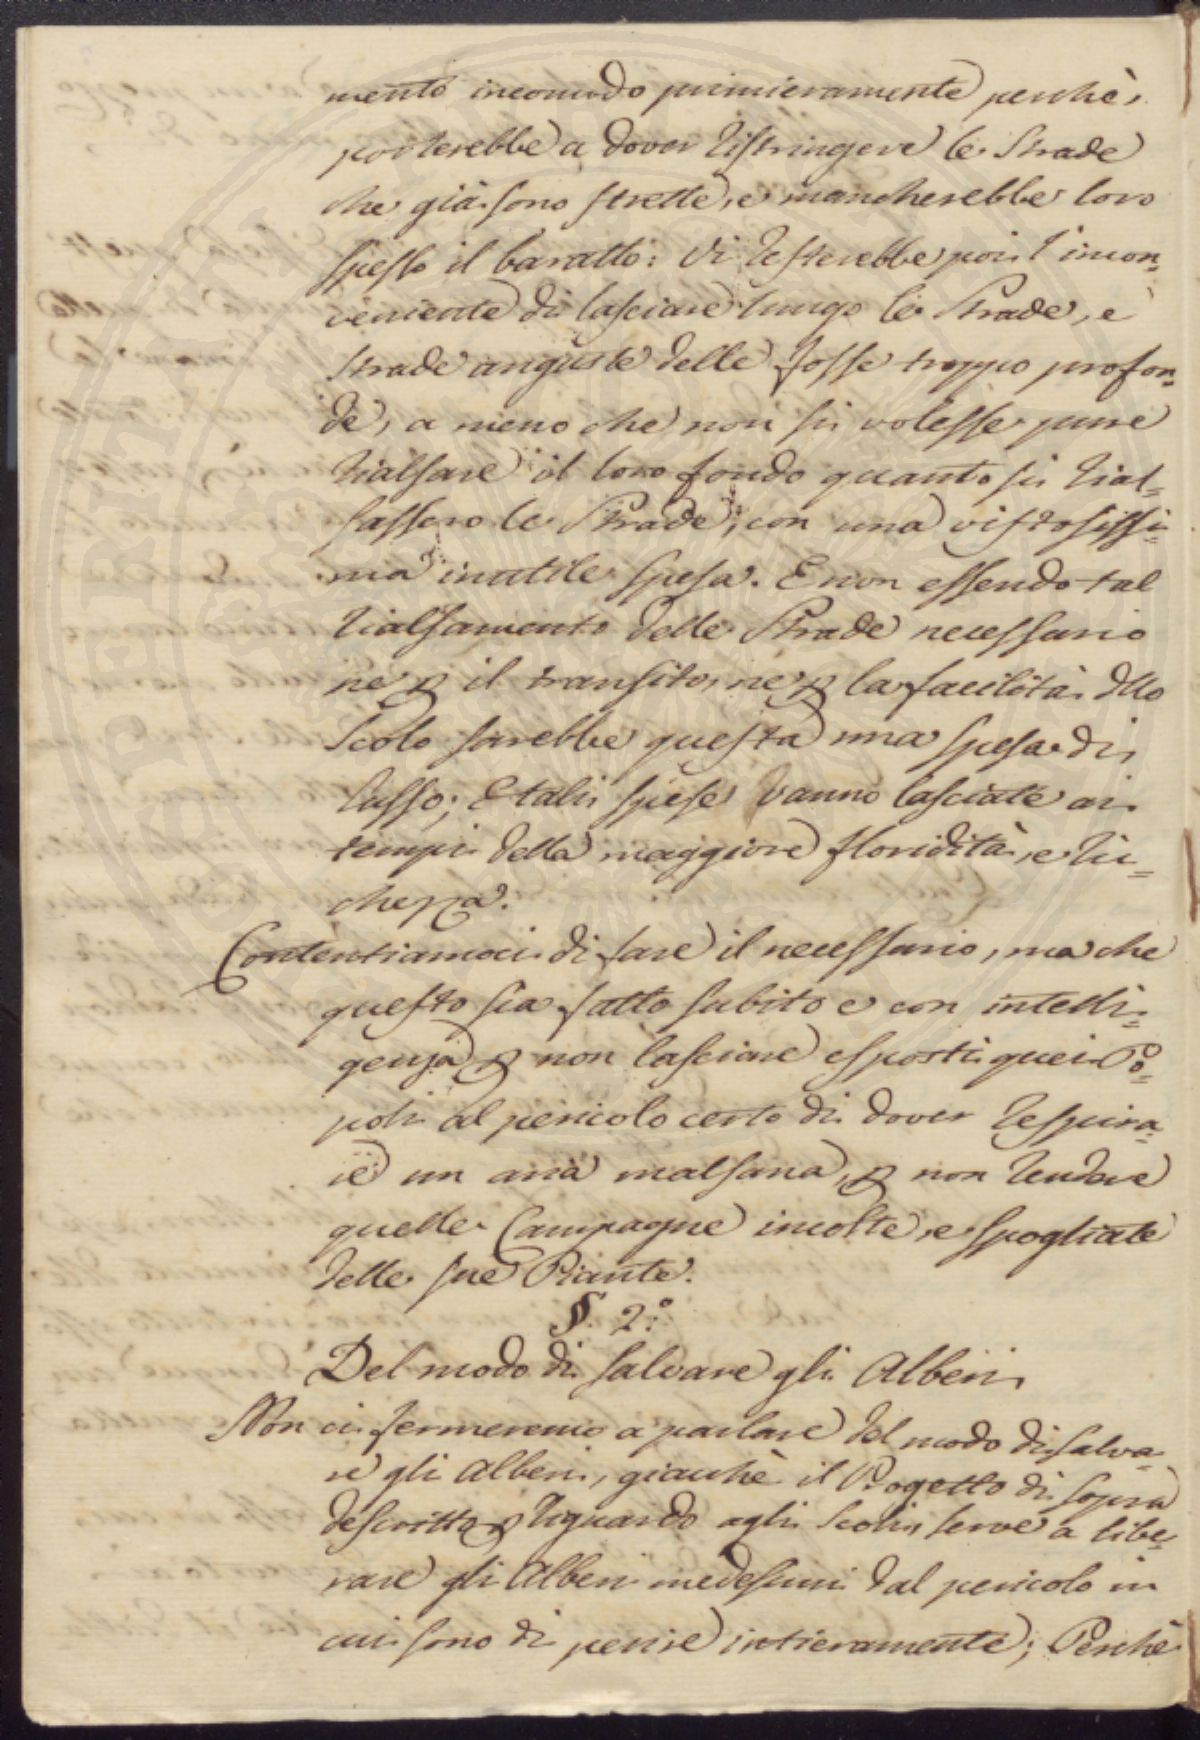 mento incomodo primieramente perchè
porterebbe a dover ristringere le Strade
che già sono strette, e mancherebbe loro
spesso il baratto: Vi resterebbe poi l'incon=
veniente di lasciare lungo le Strade, e
Strade anguste delle fosse troppo profon=
de, a meno che non si volesse pure
rialsare il loro fondo quanto si rial=
sassero le Strade, con una vistosissi=
ma inutile spesa. E non essendo tal
rialsamento delle Strade necessario
ne p il transito, ne p la facilità dllo
Scolo sarebbe questa una spesa di
lusso; E tali spese vanno lasciate ai
tempi della maggiore floridità, e ric=
chezza.
Contentiamoci di fare il necessario, ma che
questo sia fatto subito e con intelli=
genza p non lasciare esposti quei Po=
poli al pericolo certo di dover respira=
re un aria malsana, p non rendere
quelle Campagne incolte, e spogliate
delle sue Piante.
§. 2.°
Del modo di salvare gli Alberi
Non ci fermeremo a parlare del modo di salva=
re gli Alberi, giacchè il Progetto di sopra
descritto p riguardo agli Scoli serve a libe=
rare gli Alberi medesimi dal pericolo in
cui sono di perire intieramente; Perchè